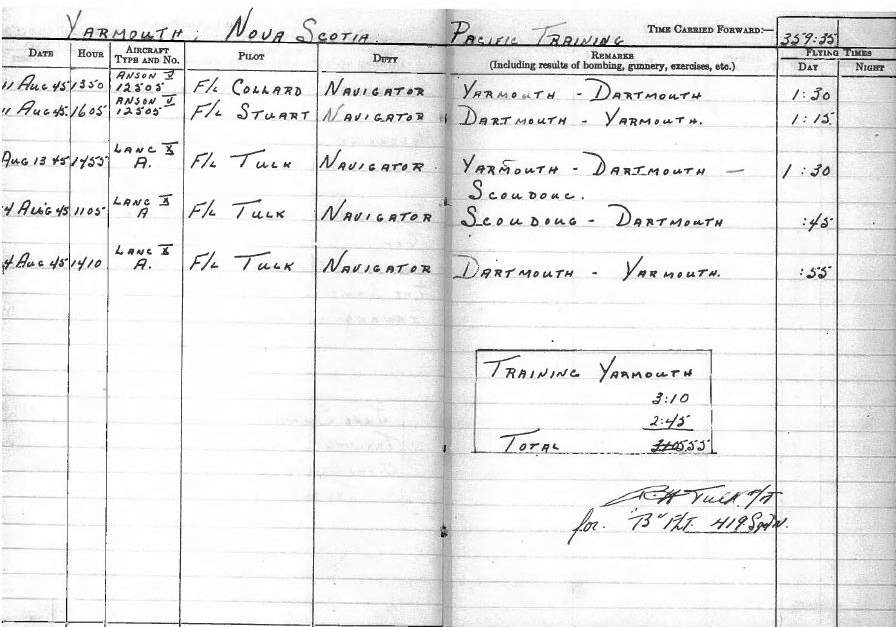 YARMOUTH, NOVA SCOTIA. PACIFIC TRAINING TIME CARRIED FORWARD:— 359:35
DATE HOUR AIRCRAFT TYPE AND NO. PILOT DUTY REMARKS (Including results of bombing, gunnery, exercises, etc.) FLYING TIMES DAY NIGHT
11 AUG 45 1350 ANSON V 12505 F/L COLLARD NAVIGATOR YARMOUTH - DARTMOUTH 1:30
11 AUG 45 1605 ANSON V 12505 F/L STUART NAVIGATOR DARTMOUTH - YARMOUTH. 1:15
AUG 13 45 1455 LANC X A. F/L TULK NAVIGATOR YARMOUTH - DARTMOUTH — 1:30
SCOUDOUC.
4 AUG 45 1105 LANC X A F/L TULK NAVIGATOR SCOUDOUC - DARTMOUTH :45
4 AUG 45 1410 LANC X A. F/L TULK NAVIGATOR DARTMOUTH - YARMOUTH. :55
TRAINING YARMOUTH
3:10
2:45
TOTAL 555
R H Tulk
for. "B" Flt. 419 Sqdn.